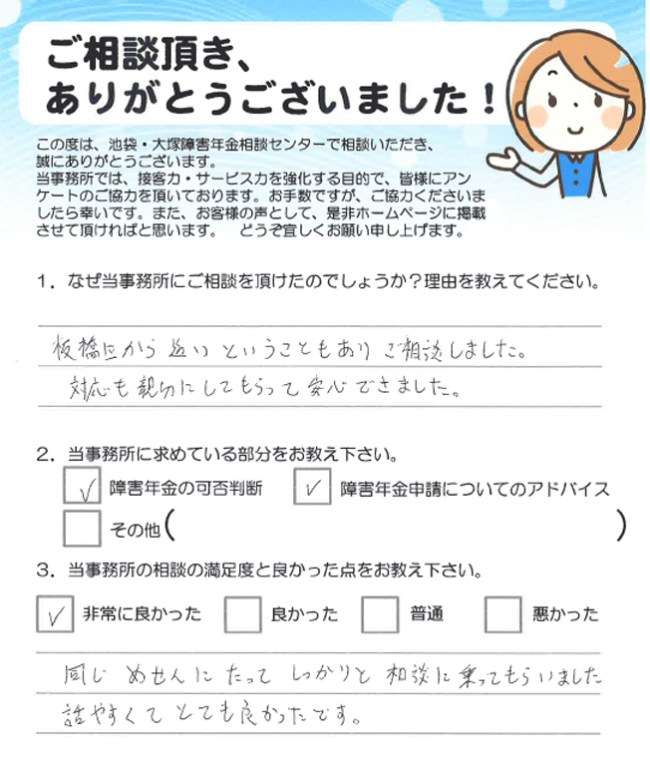 ご相談頂き、
ありがとうございました！
この度は、池袋・大塚障害年金相談センターで相談いただき、
誠にありがとうございます。
当事務所では、接客力・サービス力を強化する目的で、皆様にアン
ケートのご協力を頂いております。お手数ですが、ご協力くださいま
したら幸いです。また、お客様の声として、是非ホームページに掲載
させて頂ければと思います。　どうぞ宜しくお願い申し上げます。
1．なぜ当事務所にご相談を頂けたのでしょうか？理由を教えてください。
板橋区から近いということもありご相談しました。
対応も親切にしてもらって安心できました。
2．当事務所に求めている部分をお教え下さい。
✓ 障害年金の可否判断 ✓ 障害年金申請についてのアドバイス
その他(　)
3．当事務所の相談の満足度と良かった点をお教え下さい。
✓ 非常に良かった 良かった 普通 悪かった
同じ めせんに たって しっかりと 相談に乗ってもらいました
話やすくて とても良かったです。